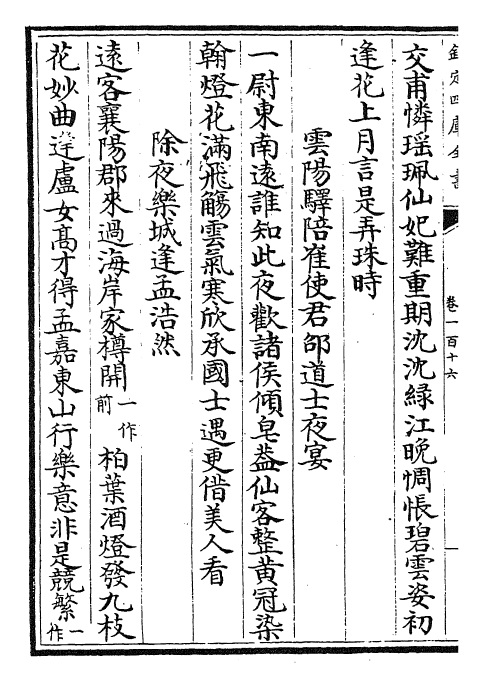 欽定四庫全書
卷一百十六
交甫憐瑶珮仙妃難重期沈沈綠江晚惆悵碧雲姿初
逢花上月言是弄珠時
雲陽驛陪崔使君邵道士夜宴
一尉東南遠誰知此夜歡諸侯傾皂蓋仙客整黄冠染
翰燈花滿飛觴雲氣寒欣承國士遇更借美人看
除夜樂城逢孟浩然
逺客襄陽郡來過海岸家樽開一作前柏葉酒燈發九枝
花妙曲逢盧女髙才得孟嘉東山行樂意非是競繁一作